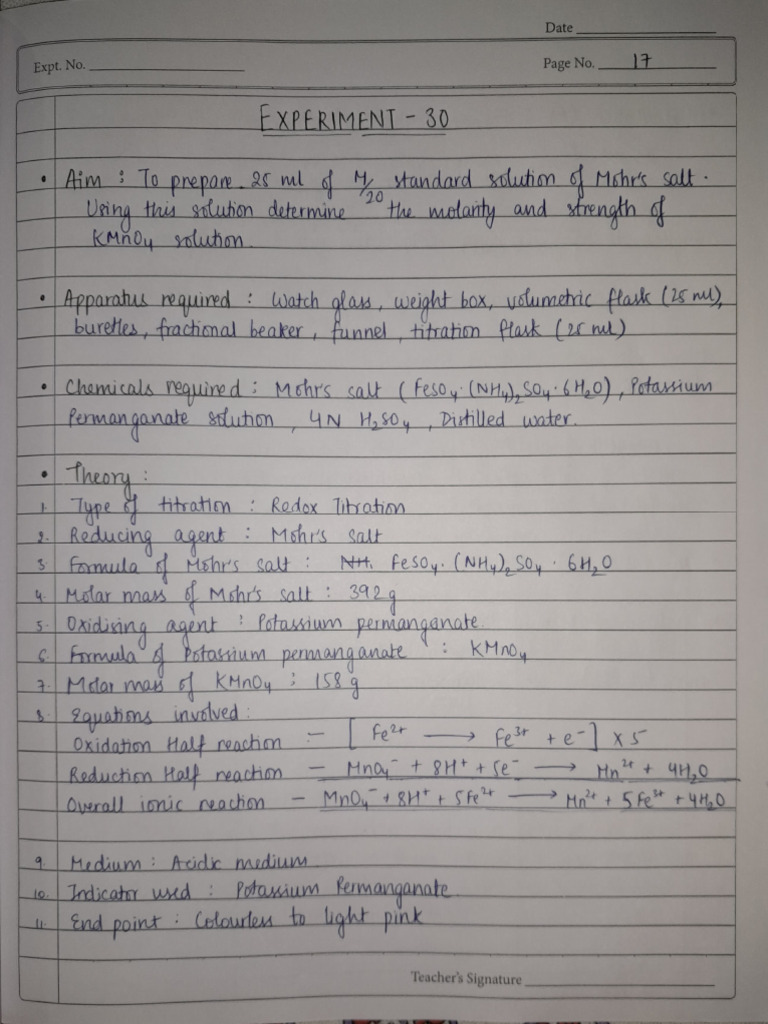 Date
Expt. No.
Page No. 17
EXPERIMENT - 30
• Aim : To prepare 25 ml of M/20 standard solution of Mohr's salt.
Using this solution determine the molarity and strength of
KMnO₄ solution.
• Apparatus required : Watch glass, weight box, volumetric flask (25 ml),
burettes, fractional beaker, funnel, titration flask (25 ml)
• Chemicals required : Mohr's salt (FeSO₄·(NH₄)₂SO₄·6H₂O), Potassium
Permanganate solution, 4N H₂SO₄, Distilled water.
• Theory :
1. Type of titration : Redox Titration
2. Reducing agent : Mohr's salt
3. Formula of Mohr's salt : FeSO₄·(NH₄)₂SO₄·6H₂O
4. Molar mass of Mohr's salt : 392g
5. Oxidising agent : Potassium permanganate.
6. Formula of Potassium permanganate : KMnO₄
7. Molar mass of KMnO₄ : 158 g
8. Equations involved :
Oxidation Half reaction :- [Fe²⁺ ⟶ Fe³⁺ + e⁻] x 5
Reduction Half reaction - MnO₄⁻ + 8H⁺ + 5e⁻ ⟶ Mn²⁺ + 4H₂O
Overall ionic reaction - MnO₄⁻ + 8H⁺ + 5Fe²⁺ ⟶ Mn²⁺ + 5Fe³⁺ + 4H₂O
9. Medium : Acidic medium
10. Indicator used : Potassium Permanganate.
11. End point : Colourless to light pink
Teacher's Signature